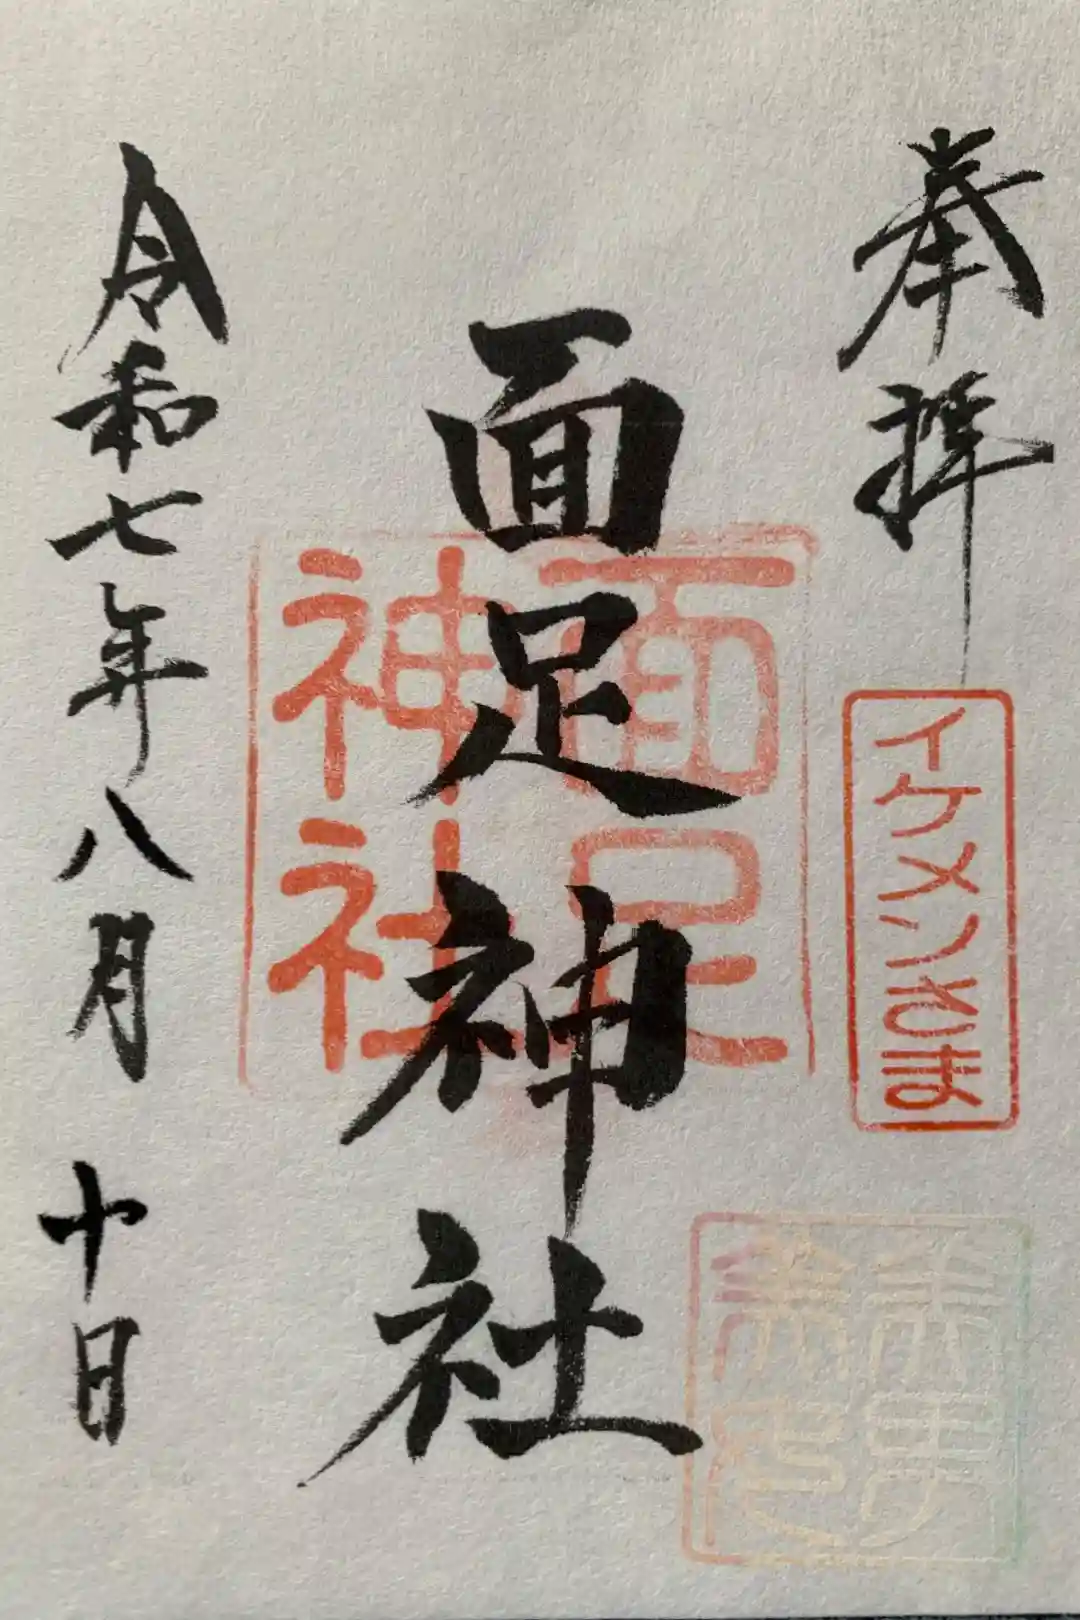 奉拝
イケメンさま
面足神社
面足
神社
令和七年八月十日